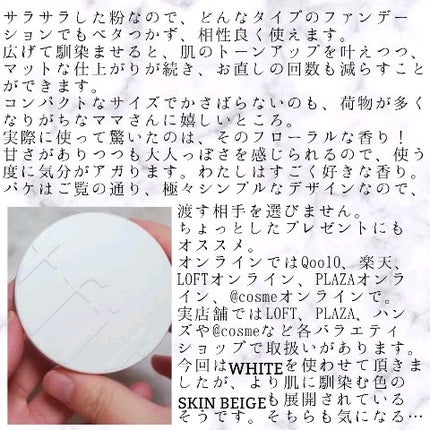 サラサラした粉なので、どんなタイプのファンデー
ションでもベタつかず、相性良く使えます。
広げて馴染ませると、肌のトーンアップを叶えつつ、
マットな仕上がりが続き、お直しの回数も減らすこと
ができます。
コンパクトなサイズでかさばらないのも、荷物が多く
なりがちなママさんに嬉しいところ。
実際に使って驚いたのは、そのフローラルな香り！
甘さがありつつも大人っぽさを感じられるので、使う
度に気分がアガります。わたしはすごく好きな香り。
パケはご覧の通り、極々シンプルなデザインなので、
渡す相手を選びません。
ちょっとしたプレゼントにも
オススメ。
オンラインではQoo10、楽天、
LOFTオンライン、PLAZAオンラ
イン、@cosmeオンラインで。
実店舗ではLOFT、PLAZA、ハン
ズや@cosmeなど各バラエティ
ショップで取扱いがあります。
今回はWHITEを使わせて頂きま
したが、より肌に馴染む色の
SKIN BEIGEも展開されている
そうです。そちらも気になる…